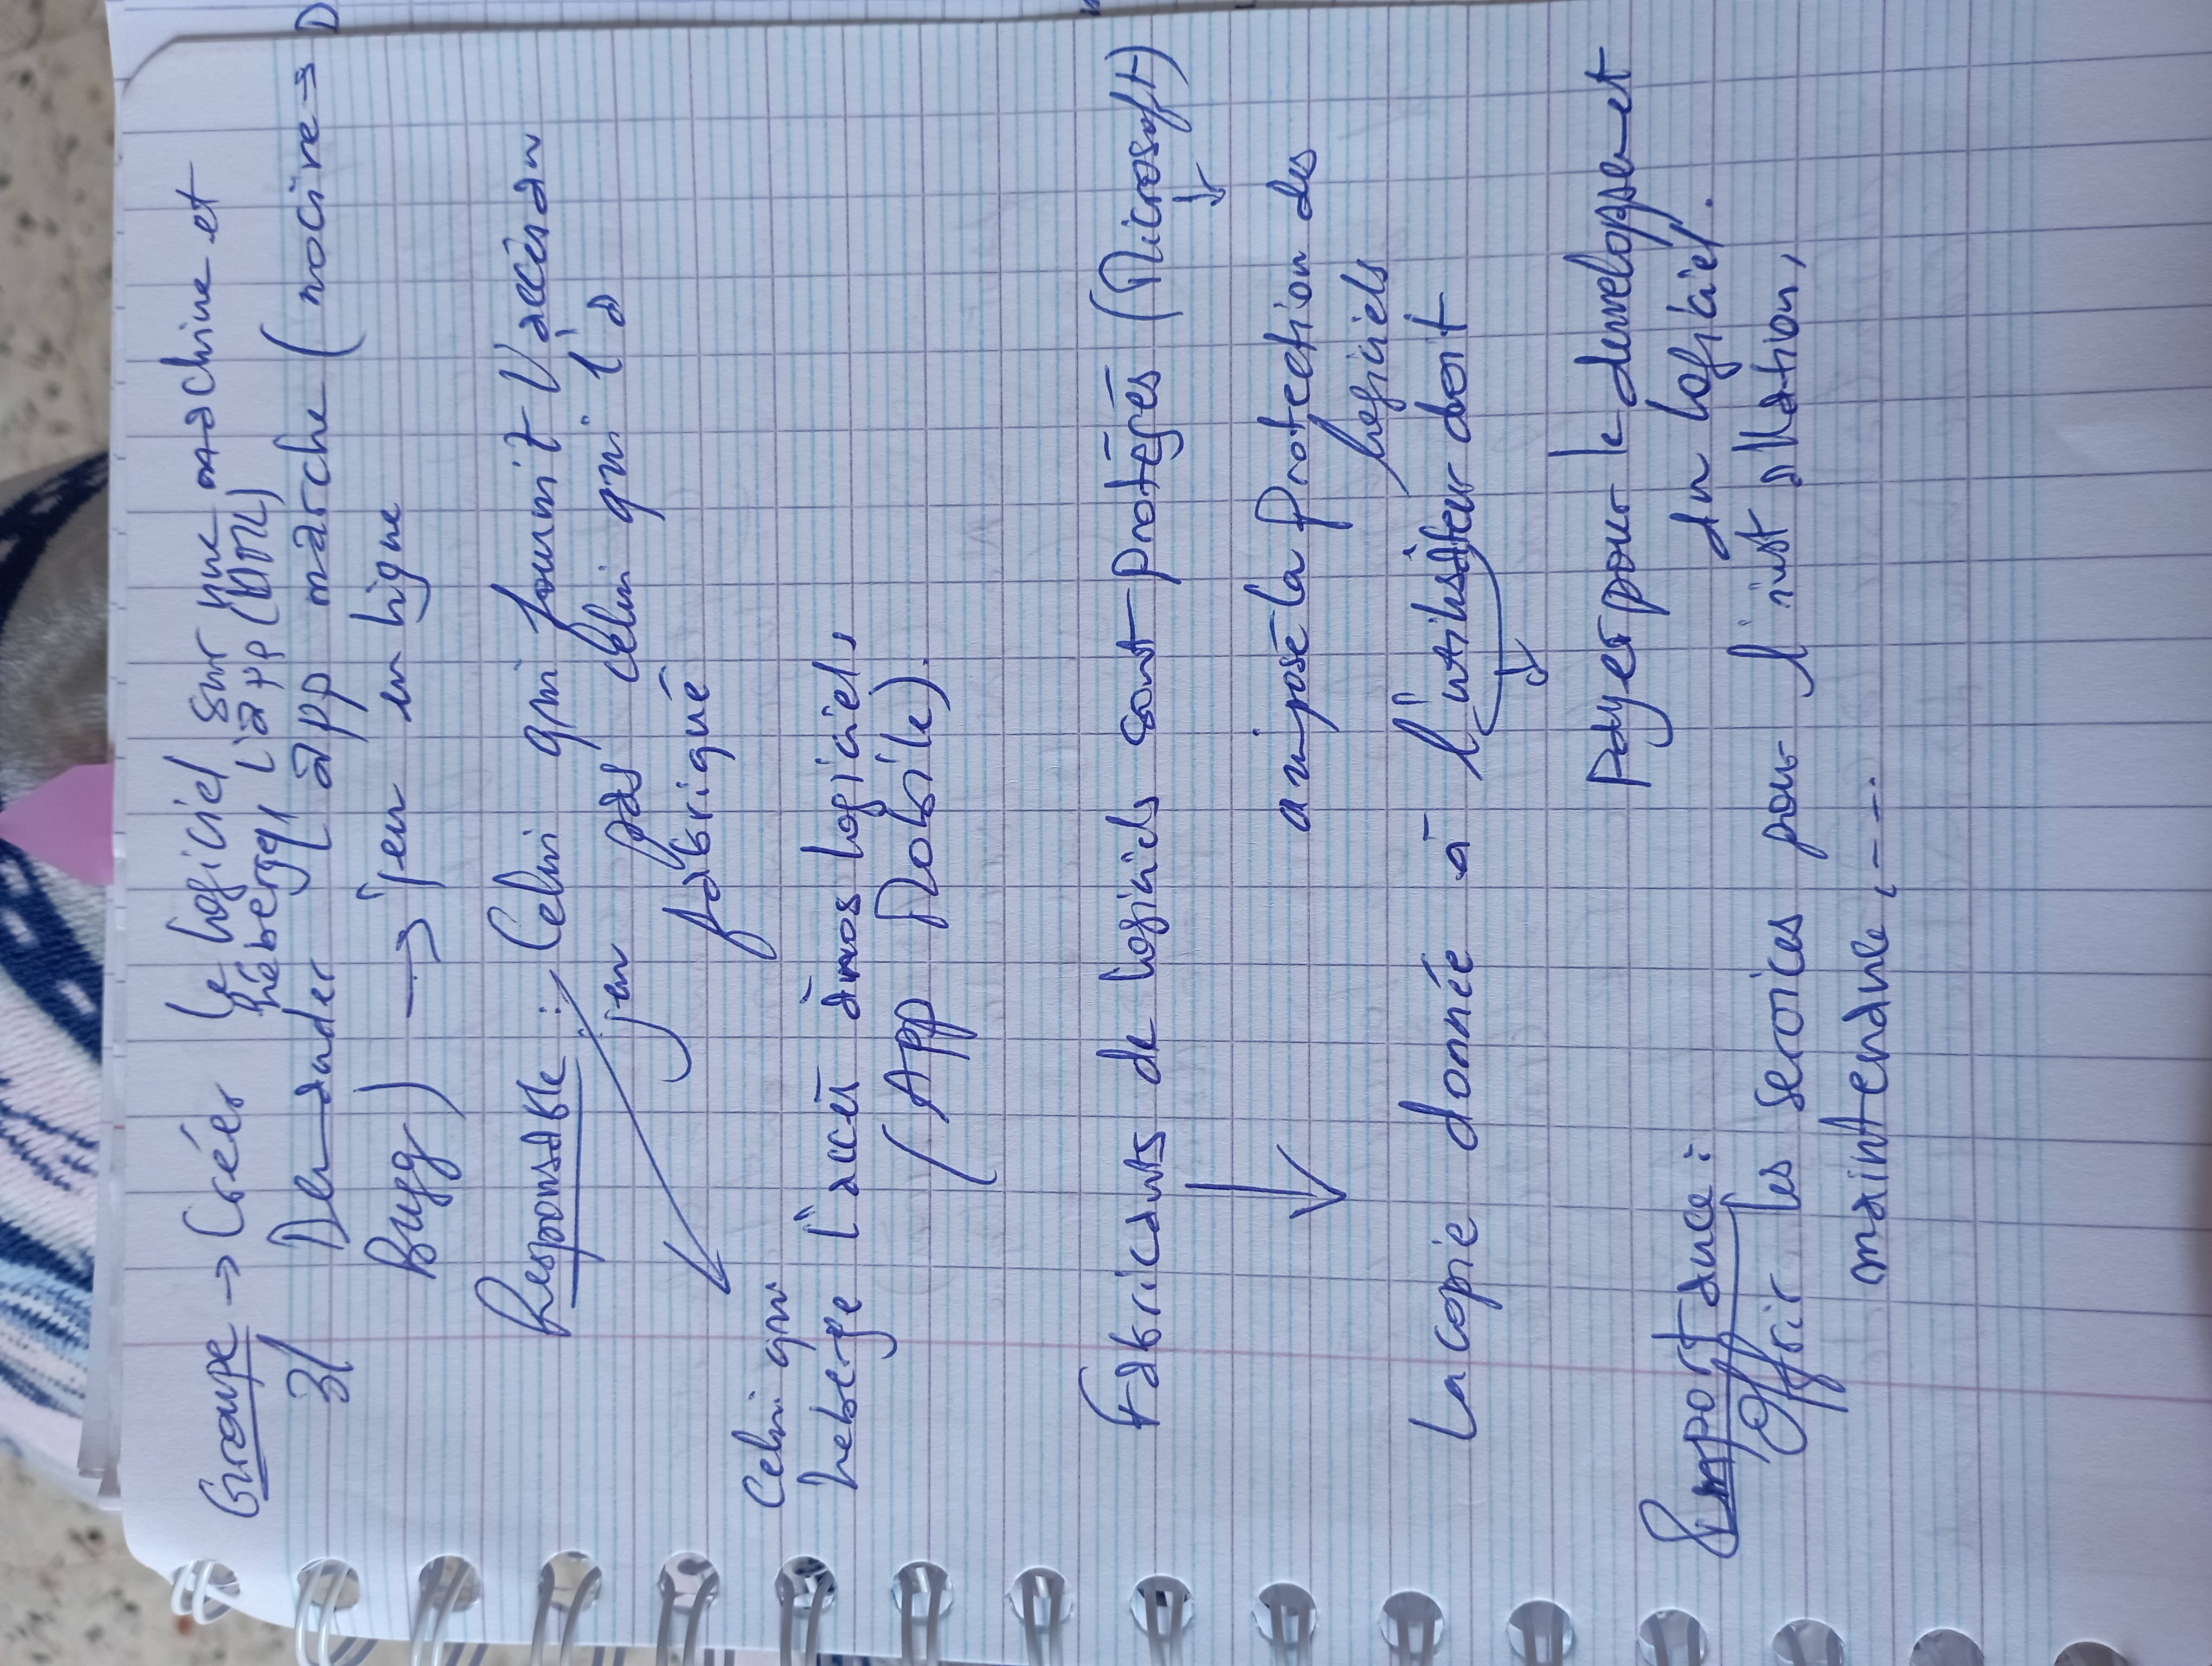 Groupe → Créer le logiciel sur une machine et
héberger l'app
3/ Demander l'app marche (nocive →
Bugg) → jeu en ligne
Responsable : Celui qui fournit l'accès au
jeu pas celui qui l'a
fabriqué
Celui qui
heberge l'accès à nos logiciels
(App Mobile).
Fabricants de logiciels sont protégés (Microsoft)
↓
a imposé la protection des
logiciels
La copie donnée à l'utilisateur doit
↓
payer pour le developpement
du logiciel.
Importance :
Offrir les services pour l'installation,
maintenance, ----